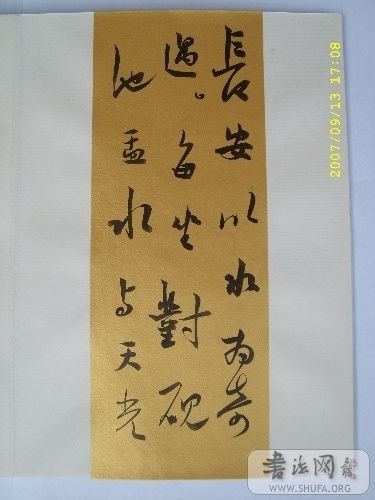 長安以水為奇
遇。每坐對硯
池盂水与天光
2007/09/13 17:08
書法网
WWW.SHUFA.ORG